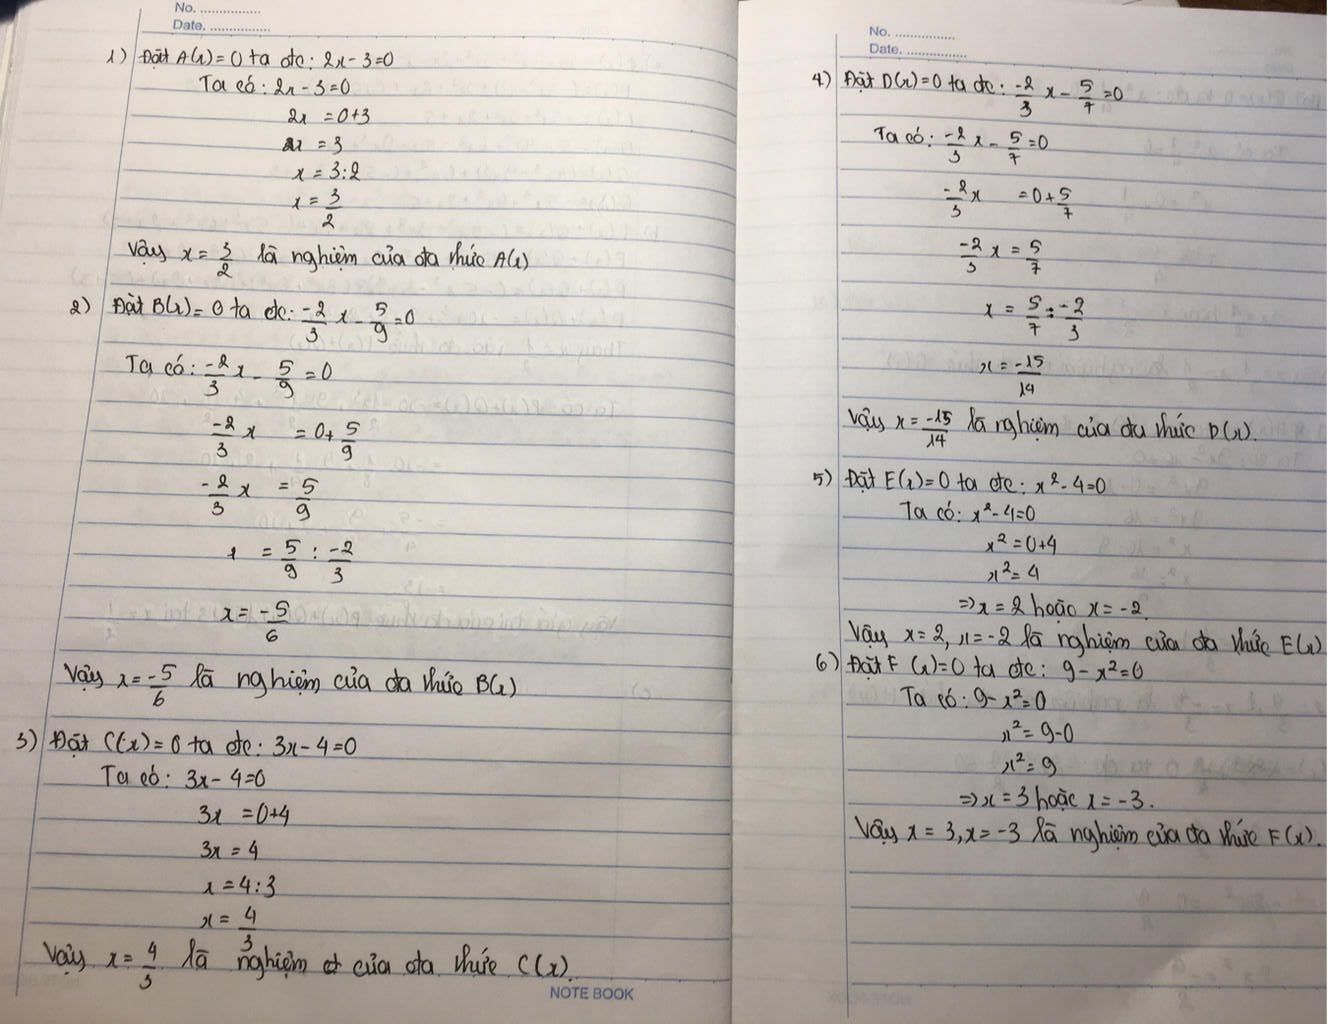 No. ................
Date. ................
1) Đặt A(x)=0 ta đc: 2x-3=0
Ta có: 2x-3=0
2x =0+3
2x = 3
x = 3:2
x = 3/2
Vậy x = 3/2 là nghiệm của đa thức A(x)
2) Đặt B(x)= 0 ta đc: -2/3 x - 5/9 =0
Ta có: -2/3 x - 5/9 =0
-2/3 x = 0+ 5/9
-2/3 x = 5/9
x = 5/9 : -2/3
x = -5/6
Vậy x = -5/6 là nghiệm của đa thức B(x)
3) Đặt C(x)= 0 ta đc: 3x-4=0
Ta có: 3x-4=0
3x =0+4
3x = 4
x = 4:3
x = 4/3
Vậy x = 4/3 là nghiệm của đa thức C(x).
NOTE BOOK
No. ................
Date. ................
4) Đặt D(x)=0 ta đc: -2/3 x - 5/7 =0
Ta có: -2/3 x - 5/7 =0
-2/3 x =0+ 5/7
-2/3 x = 5/7
x = 5/7 : -2/3
x = -15/14
Vậy x = -15/14 là nghiệm của đa thức D(x).
5) Đặt E(x)=0 ta đc: x²-4=0
Ta có: x²-4=0
x²=0+4
x²=4
=>x=2 hoặc x=-2.
Vậy x=2, x=-2 là nghiệm của đa thức E(x)
6) Đặt F(x)=0 ta đc: 9-x²=0
Ta có: 9-x²=0
x²=9-0
x²=9
=>x=3 hoặc x=-3.
Vậy x=3, x=-3 là nghiệm của đa thức F(x).